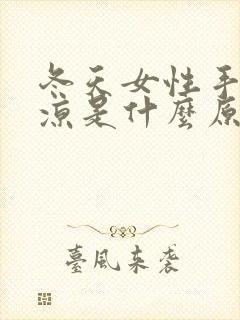 冬天女性手
凉是什麼原
臺風来袭